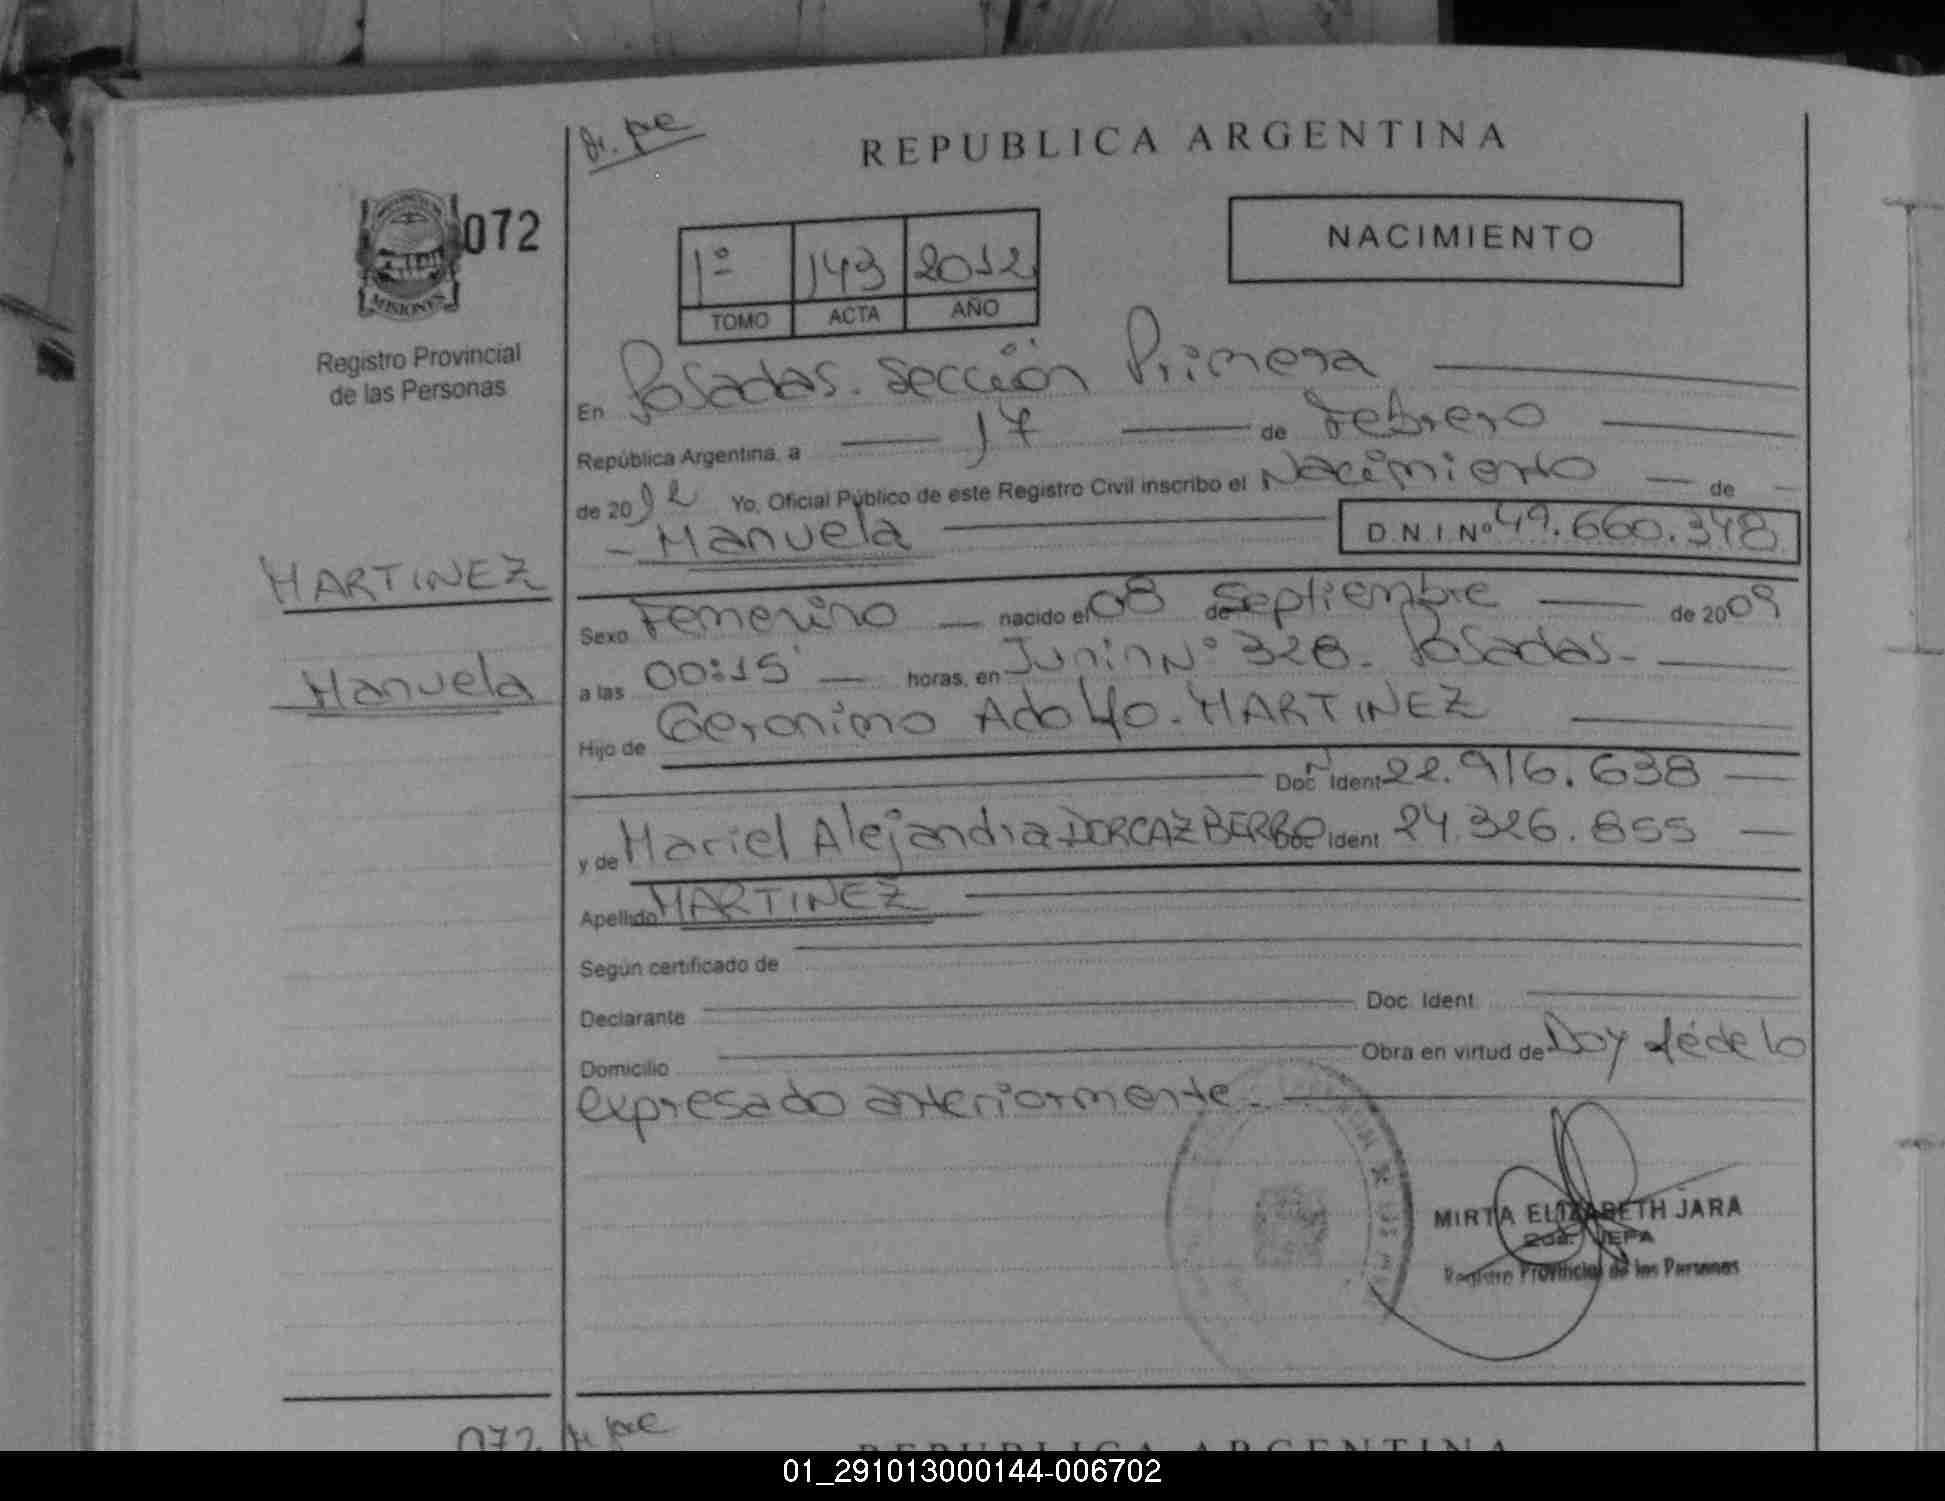 REPUBLICA ARGENTINA
072
MISIONES
Registro Provincial
de las Personas
NACIMIENTO
1º 143 2012
TOMO ACTA AÑO
En Posadas. Sección Primera
República Argentina, a 17 de Febrero
de 2012 Yo, Oficial Público de este Registro Civil inscribo el Nacimiento de
Manuela D.N.I. Nº 49.660.348
MARTINEZ
Manuela
Sexo Femenino nacido el 08 de Septiembre de 2009
a las 00:15' horas, en Junin Nº 328. Posadas.
Hijo de Geronimo Adolfo. MARTINEZ
Doc. Ident 22.916.638
y de Mariel Alejandra DORCAZBERRO Doc Ident 24.326.855
Apellido MARTINEZ
Según certificado de
Declarante Doc. Ident
Domicilio Obra en virtud de Doy fé de lo
expresado anteriormente.
MIRTA ELIZABETH JARA
2da. JEFA
Registro Provincial de las Personas
072
REPUBLICA ARGENTINA
01_291013000144-006702